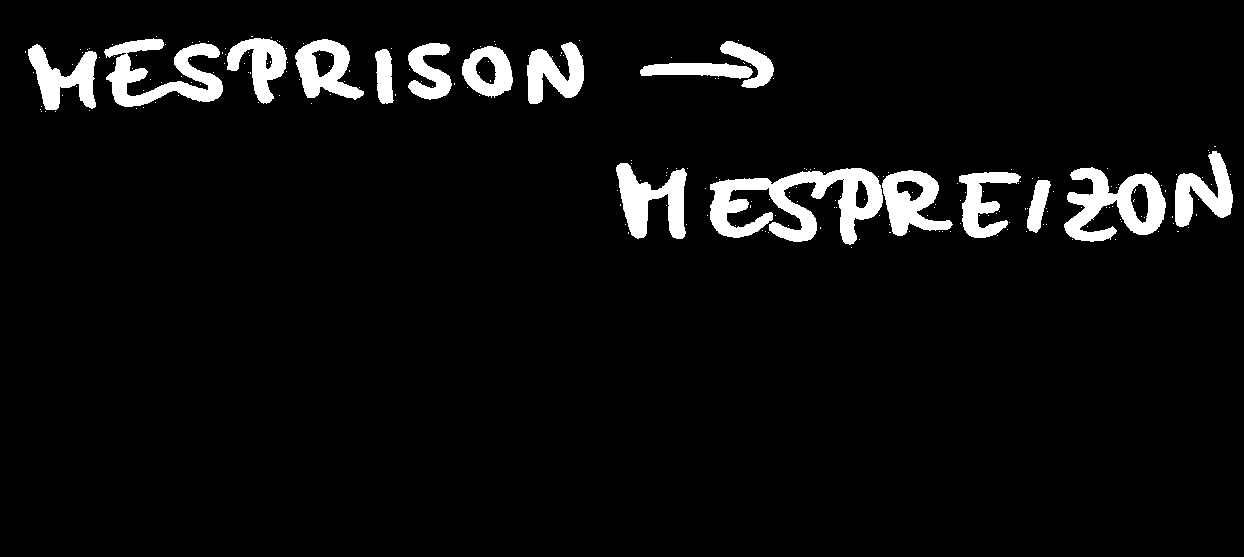 MESPRISON →
MESPREIZON